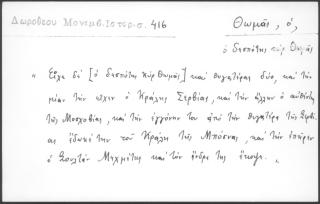 Δωροθεου Μονεμβ. Ιστορ. σ. 416
Θωμᾶς, ὁ,
ὁ δεσπότης κὺρ Θωμᾶς
" Εἶχε δὲ [ὁ δεσπότης κὺρ Θωμᾶς] καὶ θυγατέρας δύο, καὶ τὴν
μίαν τὴν εἶχεν ὁ Κράλης Σερβίας, καὶ τὴν ἄλλην ὁ αὐθέντης
τῆς Μοσχοβίας, καὶ τὴν ἐγγόνην του ἀπὸ τὴν θυγατέρα τῆς Σερβί-
ας ἔδωκέ την τοῦ Κράλη τῆς Μπόσνας, καὶ τὴν ἐπῆρεν
ὁ Σουλτὰν Μεχμέτης καὶ τὸν ἄνδρα της ἔκοψε. "